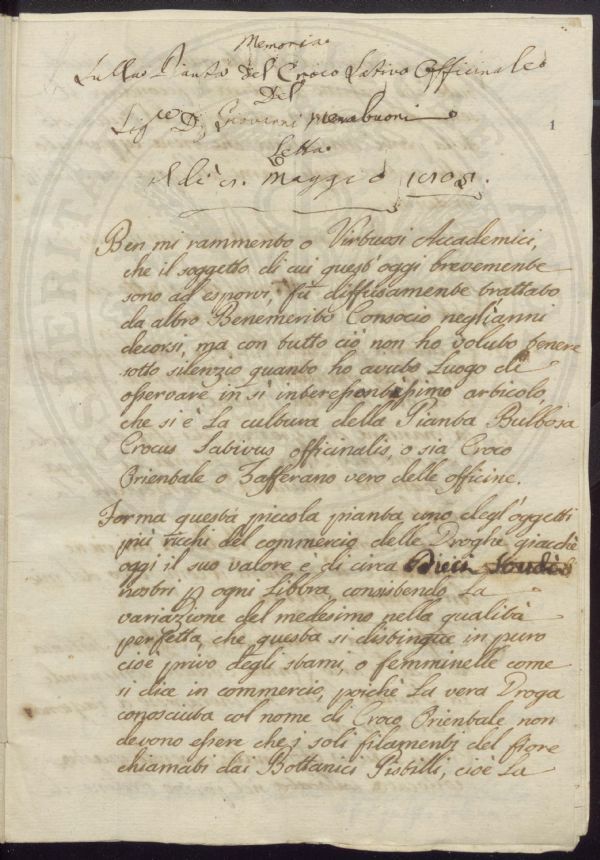 Memoria
Sulla Pianta Del Croco Sativo Officinale
Del
Sig.re D. Giovanni Merabuoni
Letta
A dì Maggio
1
Ben mi rammento o Virtuosi Accademici,
che il soggetto di cui quest'oggi brevemente
sono ad esporvi, fù diffusamente trattato
da altro Benemerito Consocio negl'anni
decorsi, ma con tutto ciò non ho voluto tenere
sotto silenzio quanto ho avuto luogo di
osservare in sì interessantissimo articolo,
che si è La cultura della Pianta Bulbosa
Crocus Sativus officinalis, o sia Croco
Orientale o Zafferano vero delle officine.
Forma questa piccola pianta uno degl'oggetti
più ricchi del commercio delle Droghe, giacchè
oggi il suo valore è di circa Dieci Scudi
nostri p ogni Libbra, consistendo La
variazione del medesimo nella qualità
perfetta, che questa si distingue in puro
cioè privo degli stami, o femminelle come
si dice in commercio, poichè La vera Droga
conosciuta col nome di Croco Orientale non
devono essere che i soli filamenti del fiore
chiamati dai Bottanici Pistilli, cioè La